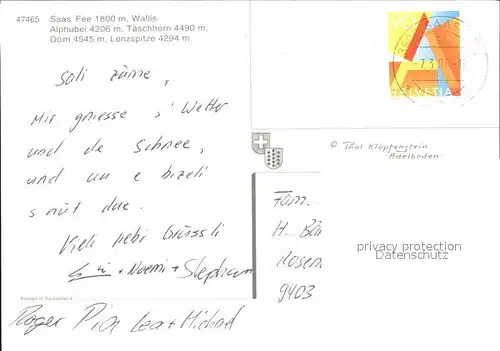 47465 Saas Fee 1800 m, Wallis
Alphubel 4206 m, Täschhorn 4490 m,
Dom 4545 m, Lenzspitze 4294 m
Sali zäme,
Mir gniesse s' Wetter
und de Schnee,
und un e bizeli
s nüt due.
Vieli liebi Grüessli
+ Noemi + Stephan
Roger Pia Lea + Michael
Printed in Switzerland
HELVETIA
© Thol Klopfenstein
Adelboden
Fam.
H. Bär
Rosen
9403
privacy protection
Datenschutz